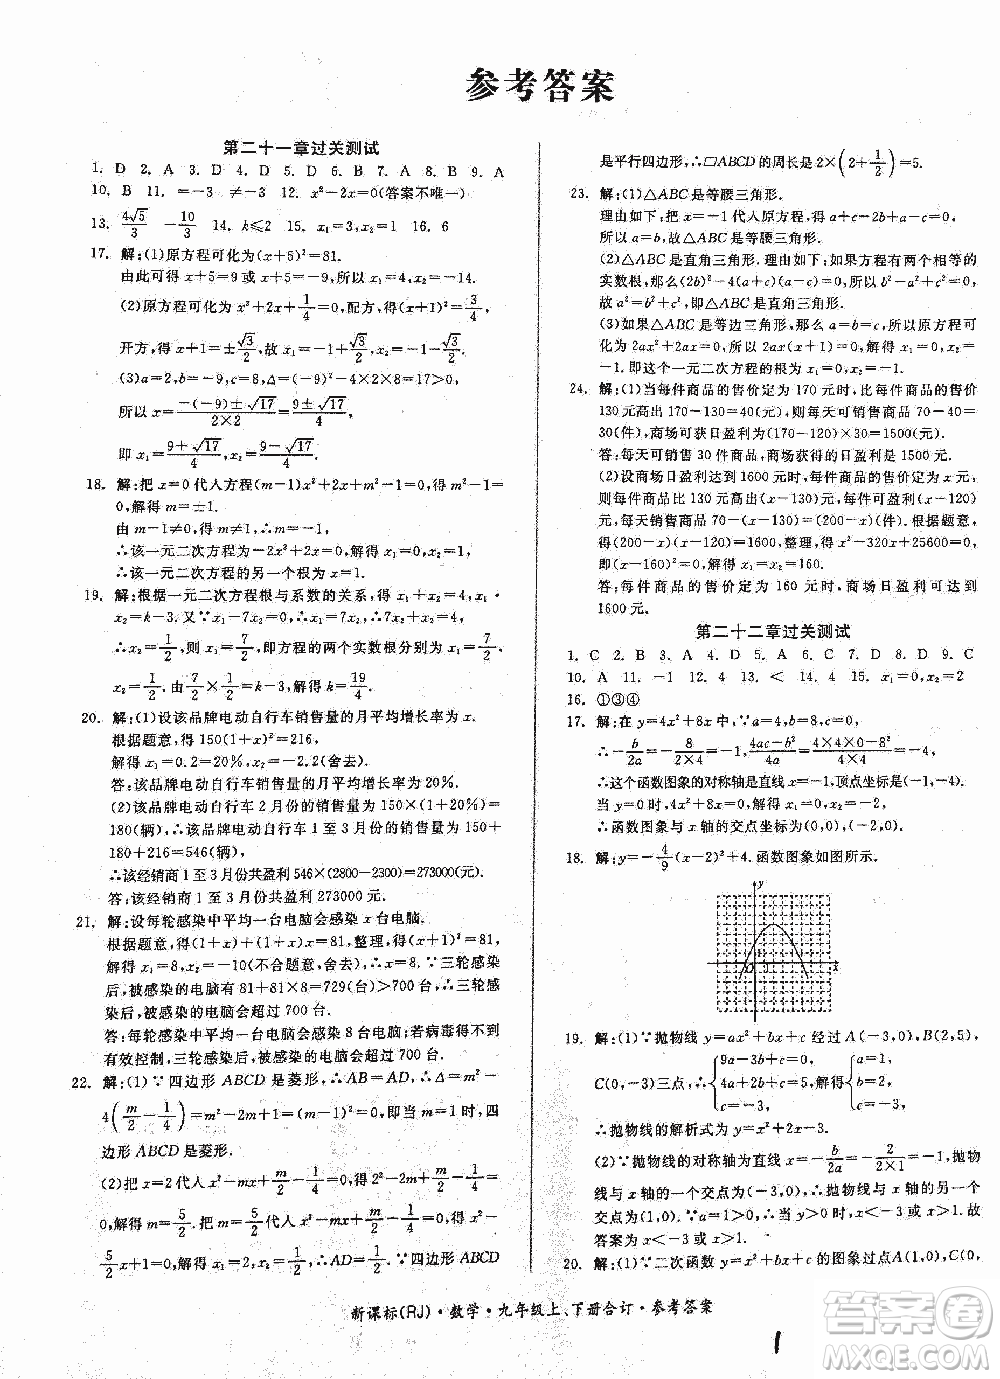 参考答案
第二十一章过关测试
1. D 2. A 3. D 4. D 5. D 6. B 7. A 8. B 9. A
10. B 11. =-3 ≠-3 12. x²-2x=0(答案不唯一)
13. 4√5/3 -10/3 14. k≤2 15. x₁=3,x₂=-3 16. 6
17. 解:(1)原方程可化为(x+5)²=81.
由此可得 x+5=9或x+5=-9,所以 x₁=4,x₂=-14.
(2)原方程可化为 x²+2x+1/4=0,配方,得(x+1)²=3/4,
开方,得 x+1=±√3/2,故 x₁=√3/2-1,x₂=-√3/2-1.
(3)a=2,b=-9,c=8,Δ=(-9)²-4×2×8=17,
所以 x=(-(-9)±√17)/(2×2)=(9±√17)/4,
即 x₁=(9+√17)/4,x₂=(9-√17)/4.
18. 解:把 x=0代入方程(m-1)x²+2x+m²-1=0,得 m²-1=
0,解得 m=±1.
由 m-1≠0,得 m≠1,∴m=-1,
∴该一元二次方程为-2x²+2x=0,解得 x₁=0,x₂=1.
∴该一元二次方程的另一个根是 x=1.
19. 解:根据一元二次方程根与系数的关系,得 x₁+x₂=4,x₁·
x₂=k-3.又∵x₁-7x₂=0,∴x₁=7x₂,∴7x₂+x₂=4,
∴x₂=1/2,则 x₁=7×1/2=7/2,即方程的两个实数根分别为 x₁=7/2,
x₂=1/2.由7/2×1/2=k-3,解得 k=19/4.
20. 解:(1)设该品牌电动自行车销售量的月平均增长率为 x.
根据题意,得150(1+x)²=216,
解得 x₁=0.2=20%,x₂=-2.2(舍去).
答:该品牌电动自行车销售量的月平均增长率为20%.
(2)该品牌电动自行车2月份的销售量为150×(1+20%)=
180(辆),∴该品牌电动自行车1至3月份的销售量为150+
180+216=546(辆),
∴该经销商1至3月份共盈利546×(2800-2300)=273000(元).
答:该经销商1至3月份共盈利273000元.
21. 解:设每轮感染中平均一台电脑会感染 x 台电脑.
根据题意,得(1+x)+(1+x)x=81,整理,得(1+x)²=81,
解得 x₁=8,x₂=-10(不合题意,舍去),∴x=8.∵三轮感染
后,被感染的电脑有81+81×8=729(台)>700,∴三轮感
染后,被感染的电脑会超过700台.
答:每轮感染中平均一台电脑会感染8台电脑;若病毒得不到
有效控制,三轮感染后,被感染的电脑会超过700台.
22. 解:(1)∵四边形 ABCD 是菱形,∴AB=AD,∴Δ=m²-
4(m/2-1/4)=m²-2m+1=(m-1)²=0,即当 m=1时,四
边形 ABCD 是菱形.
(2)把 x=2代入 x²-mx+m/2-1/4=0,得4-2m+m/2-1/4=
0,解得 m=5/2.把 m=5/2代入 x²-mx+m/2-1/4=0,得 x²-
5/2x+1=0,解得 x₁=2,x₂=1/2,∴AD=1/2.∵四边形 ABCD
是平行四边形,∴▱ABCD的周长是2×(2+1/2)=5.
23. 解:(1)△ABC 是等腰三角形.
理由如下:把 x=-1代入原方程,得 a+c-2b+a-c=0,
所以 a=b,故△ABC是等腰三角形.
(2)△ABC是直角三角形.理由如下:因为方程有两个相等的
实数根,那么(2b)²-4(a+c)(a-c)=0,所以 b²-a²+c²=0,
故 a²=b²+c²,即△ABC是直角三角形.
(3)如果△ABC是等边三角形,那么 a=b=c,所以原方程可
化为2ax²+2ax=0,所以2ax(x+1)=0,所以 x₁=0,x₂=
-1.即这个一元二次方程的根为 x₁=0,x₂=-1.
24. 解:(1)当每件商品的售价定为170元时,比每件商品的售价
130元高出170-130=40(元),则每天可销售商品70-40=
30(件),商场可获日盈利为(170-120)×30=1500(元).
答:每天可销售30件商品,商场获得的日盈利是1500元.
(2)设商场日盈利达到1600元时,每件商品的售价定为 x 元,
则每件商品比130元高出(x-130)元,每件可盈利(x-120)
元,每天销售商品70-(x-130)=(200-x)件.根据题意,
得(200-x)(x-120)=1600,整理,得 x²-320x+25600=0,
即(x-160)²=0,解得 x₁=x₂=160.
答:每件商品的售价定为160元时,商场日盈利可达到
1600元.
第二十二章过关测试
1. C 2. B 3. B 4. A 5. D 6. D 7. B 8. D 9. C
10. A 11. -1 12. 4 13. < 14. 4 15. x₁=0,x₂=2
16. ①③④
17. 解:在 y=4x²+8x 中,∵a=4,b=8,c=0,
∴-b/2a=-8/(2×4)=-1,(4ac-b²)/4a=(4×4×0-8²)/(4×4)=-4,
∴这个函数图象的对称轴是直线 x=-1,顶点坐标是(-1,-4).
当 y=0时,4x²+8x=0,解得 x₁=0,x₂=-2,
∴函数图象与 x 轴的交点坐标为(0,0),(-2,0).
18. 解:y=-4/9(x-2)²+4.函数图象如图所示.
y
O
x
19. 解:(1)∵抛物线 y=ax²+bx+c 经过 A(-3,0),B(2,5),
C(0,-3)三点,∴{9a-3b+c=0, 4a+2b+c=5, c=-3, 解得{a=1, b=2, c=-3,
∴抛物线的解析式为 y=x²+2x-3.
(2)∵抛物线的对称轴为直线 x=-b/2a=-2/(2×1)=-1,抛物
线与 x 轴的一个交点为(-3,0),∴抛物线与 x 轴的另一个
交点为(1,0).∵a=1>0,∴抛物线的开口向上,故
答案为 x<-3或 x>1.
20. 解:(1)∵二次函数 y=ax²+bx+c 的图象过点A(1,0),C(0,
新课标(RJ)·数学·九年级上、下册合订·参考答案
1
答案圈
MXQE.COM